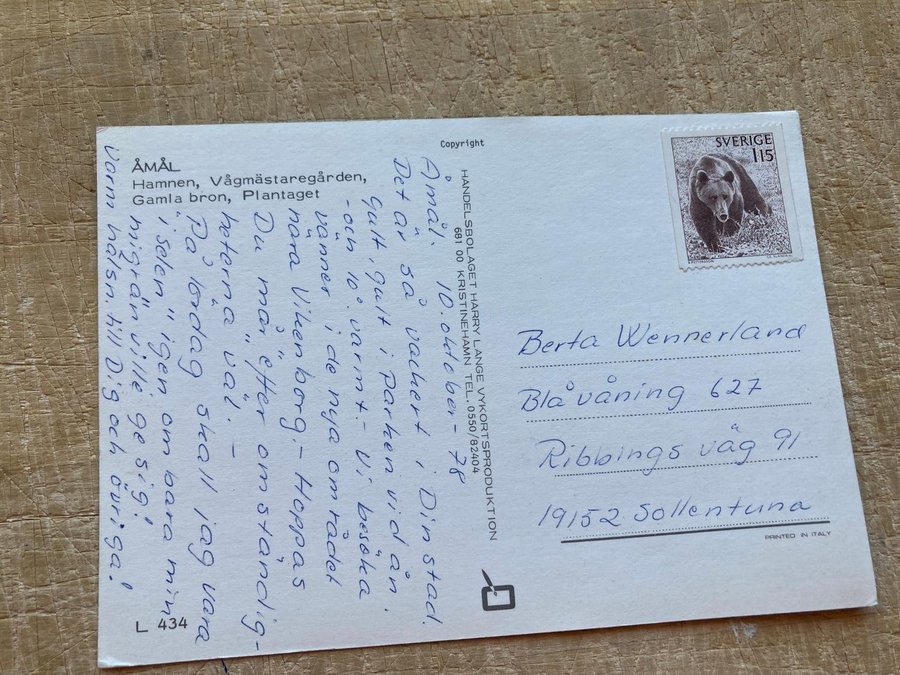 ÅMÅL
Hamnen, Vågmästaregården,
Gamla bron, Plantaget
Copyright
HANDELSBOLAGET HARRY LANGE VYKORTSPRODUKTION
681 00 KRISTINEHAMN TEL. 0550/82404
Åmål. 10. oktober - 78
Det är så vackert i Din stad.
Gult, gult i parken vid ån.
- och 10° varmt - Vi besöka
vänner i de nya området
nära Vikenborg. - Hoppas
Du mår "efter omständig-
heterna" väl. -
På lördag skall jag vara
"i selen" igen om bara min
migrän ville ge sig!
Varm hälsn. till Dig och övriga!
SVERIGE
1 15
Berta Wennerland
Blåvåning 627
Ribbings väg 91
19152 Sollentuna
PRINTED IN ITALY
L 434